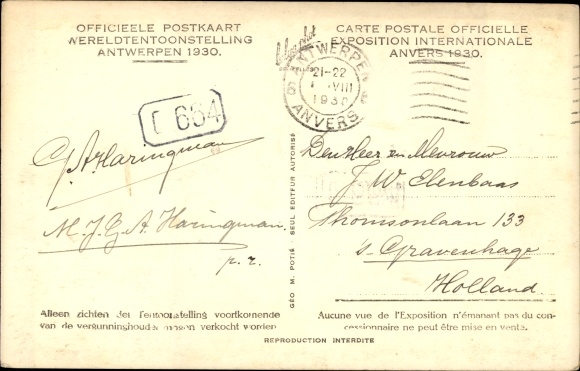 OFFICIEELE POSTKAART
WERELDTENTOONSTELLING
ANTWERPEN 1930.
CARTE POSTALE OFFICIELLE
EXPOSITION INTERNATIONALE
ANVERS 1930.
ANTWERPEN
21-22
VIII
1930
ANVERS
664
G A Haringman
M. J. G. A Haringman.
p. r.
GÉO M. POTIÉ - SEUL EDITEUR AUTORISÉ
Den Heer en Mevrouw
J W Elenbaas
Thomsonlaan 133
's Gravenhage
Holland.
Alleen zichten der Tentoonstelling voortkomende
van de vergunninghouder mogen verkocht worden
Aucune vue de l'Exposition n'émanant pas du con-
cessionnaire ne peut être mise en vente.
REPRODUCTION INTERDITE